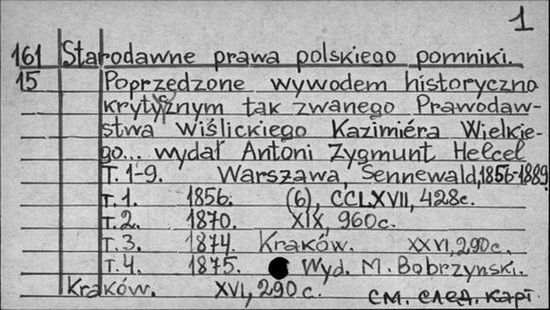 1
161 Starodawne prawa polskiego pomniki.
15 Poprzędzone wywodem historyczno
krytycznym tak zwanego Prawodaw-
stwa Wiślickiego Kazimiéra Wielkie-
go... wydał Antoni Zygmunt Helcel
T. 1-9. Warszawa, Sennewald, 1856-1889.
T. 1. 1856. (6), CCLXVII, 428c.
T. 2. 1870. XIX, 960c.
T. 3. 1874. Kraków. XXVI, 290c.
T. 4. 1875. Wyd. M. Bobrzynski.
Kraków. XVI, 290c. см. след. карт.